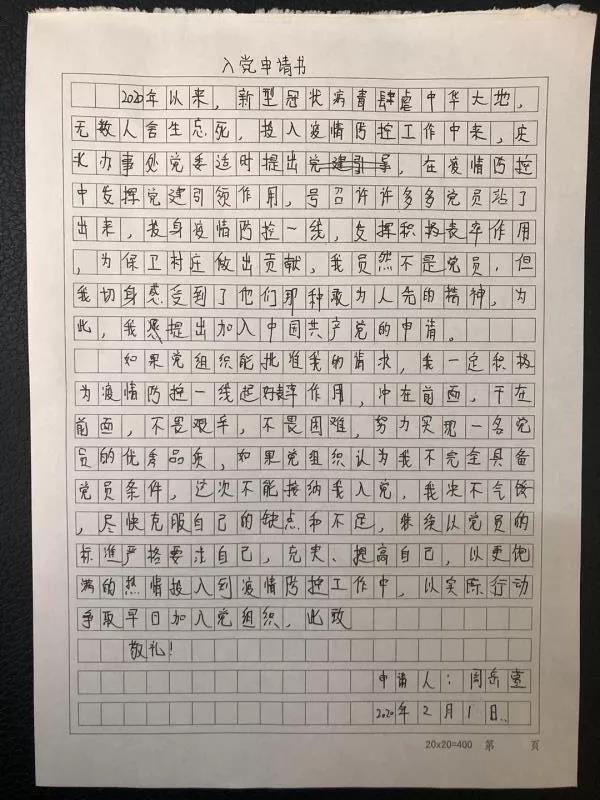 入党申请书
2020年以来，新型冠状病毒肆虐中华大地，
无数人舍生忘死，投入疫情防控工作中来，庆
长办事处党委适时提出党建引导，在疫情防控
中发挥党建引领作用，号召许许多多党员站了
出来，投身疫情防控一线，发挥积极表率作用
，为保卫村庄做出贡献，我虽然不是党员，但
我切身感受到了他们那种敢为人先的精神，为
此，我愿提出加入中国共产党的申请。
如果党组织能批准我的请求，我一定积极
为疫情防控一线起好表率作用，冲在前面，干在
前面，不畏艰辛，不畏困难，努力实现一名党
员的优秀品质，如果党组织认为我不完全具备
党员条件，这次不能接纳我入党，我决不气馁
，尽快克服自己的缺点和不足，继续以党员的
标准严格要求自己，充实、提高自己，以更饱
满的热情投入到疫情防控工作中，以实际行动
争取早日加入党组织，此致
敬礼！
申请人：周岳
2020年2月1日
20×20=400 第 页